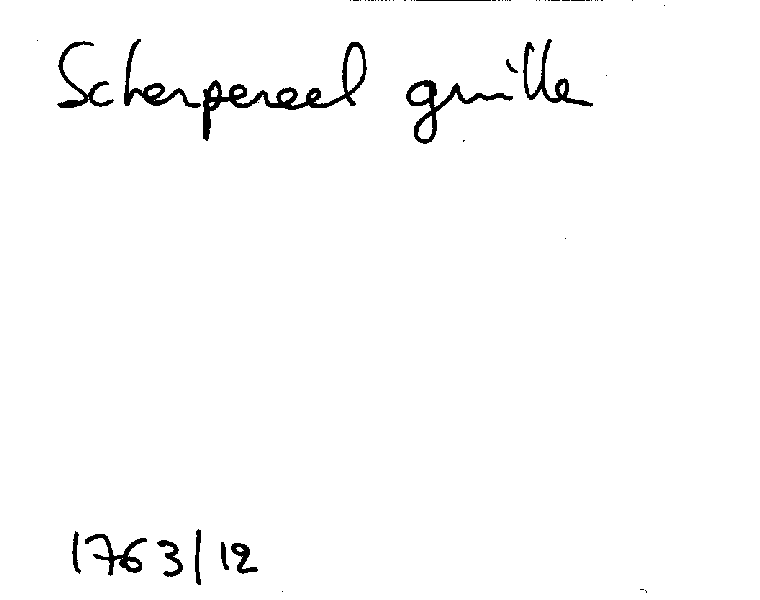 Scherpereel guille
1763/12